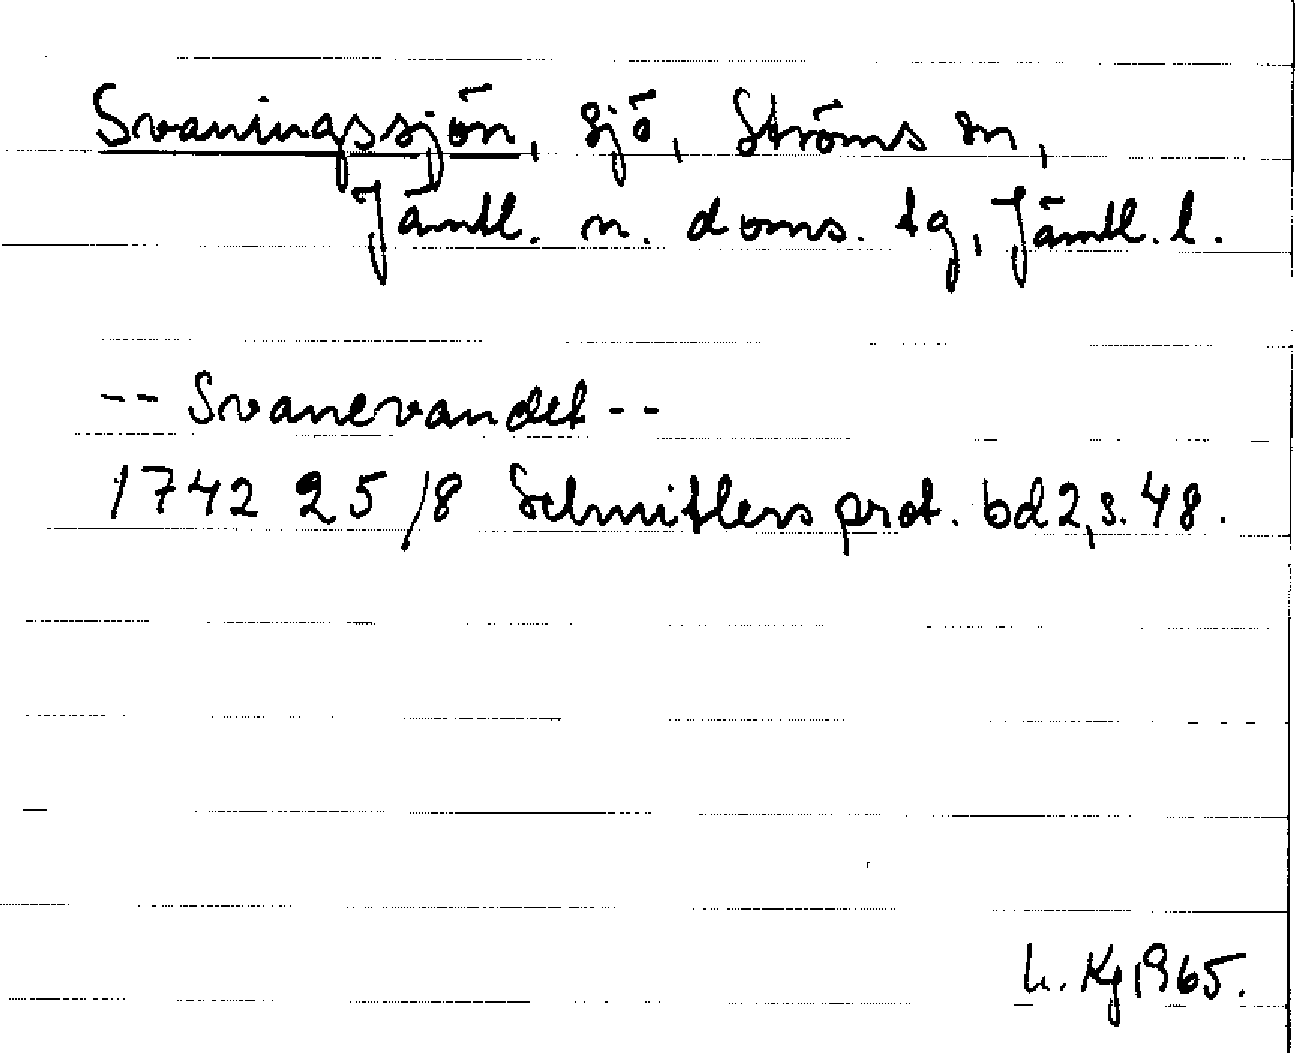 Svaningssjön, sjö, Ströms sn,
Jämtl. n. doms. tg, Jämtl. l.
-- Svanevandet --
1742 25/8 Schnitlers prot. bd 2, s. 48.
L. Kj 1965.